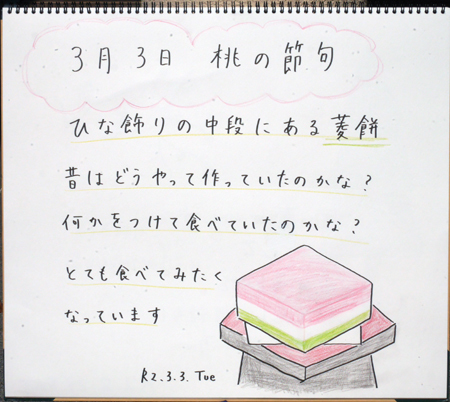 3月3日 桃の節句
ひな飾りの中段にある菱餅
昔はどうやって作っていたのかな?
何かをつけて食べていたのかな?
とても食べてみたく
なっています
R2.3.3. Tue